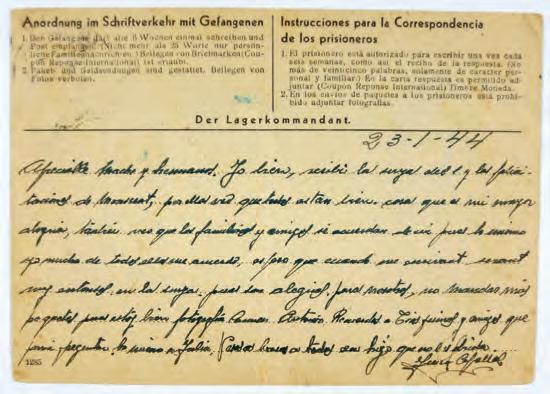 Anordnung im Schriftverkehr mit Gefangenen
1. Der Gefangene darf alle 6 Wochen einmal schreiben und
Post empfangen. (Nicht mehr als 25 Worte nur persön-
liche Familiennachrichten.) Beilegen von Briefmarken (Cou-
pon Reponse International) ist erlaubt.
2. Paket- und Geldsendungen sind gestattet. Beilegen von
Fotos verboten.
Instrucciones para la Correspondencia
de los prisioneros
1. El prisionero está autorizado para escribir una vez cada
seis semanas, como así el recibo de la respuesta. (No
más de veinticinco palabras, solamente de caracter per-
sonal y familiar.) En la carta respuesta es permitido ad-
juntar (Coupon Reponse International) Timbre Moneda.
2. En los envíos de paquetes a los prisioneros está prohi-
bido adjuntar fotografías.
Der Lagerkommandant.
23-1-44
Apreciable madre y hermanos. Yo bien, recibí la suya del 1 y las felici-
taciones de por ellas veo que todos están bien. cosa que es mi mayor
alegria, también veo que los familiares y amigos se acuerdan de mi pues lo mismo
yo mucho de todos ellos me acuerdo, espero que cuando me
muy en la suya, pues son alegrias para nosotros, no mandar más
paquetes pues estoy bien fotografía Recuerdos a y amigos que
por mi preguntan lo mismo a Julia. a todos su hijo que no les olvida
1285